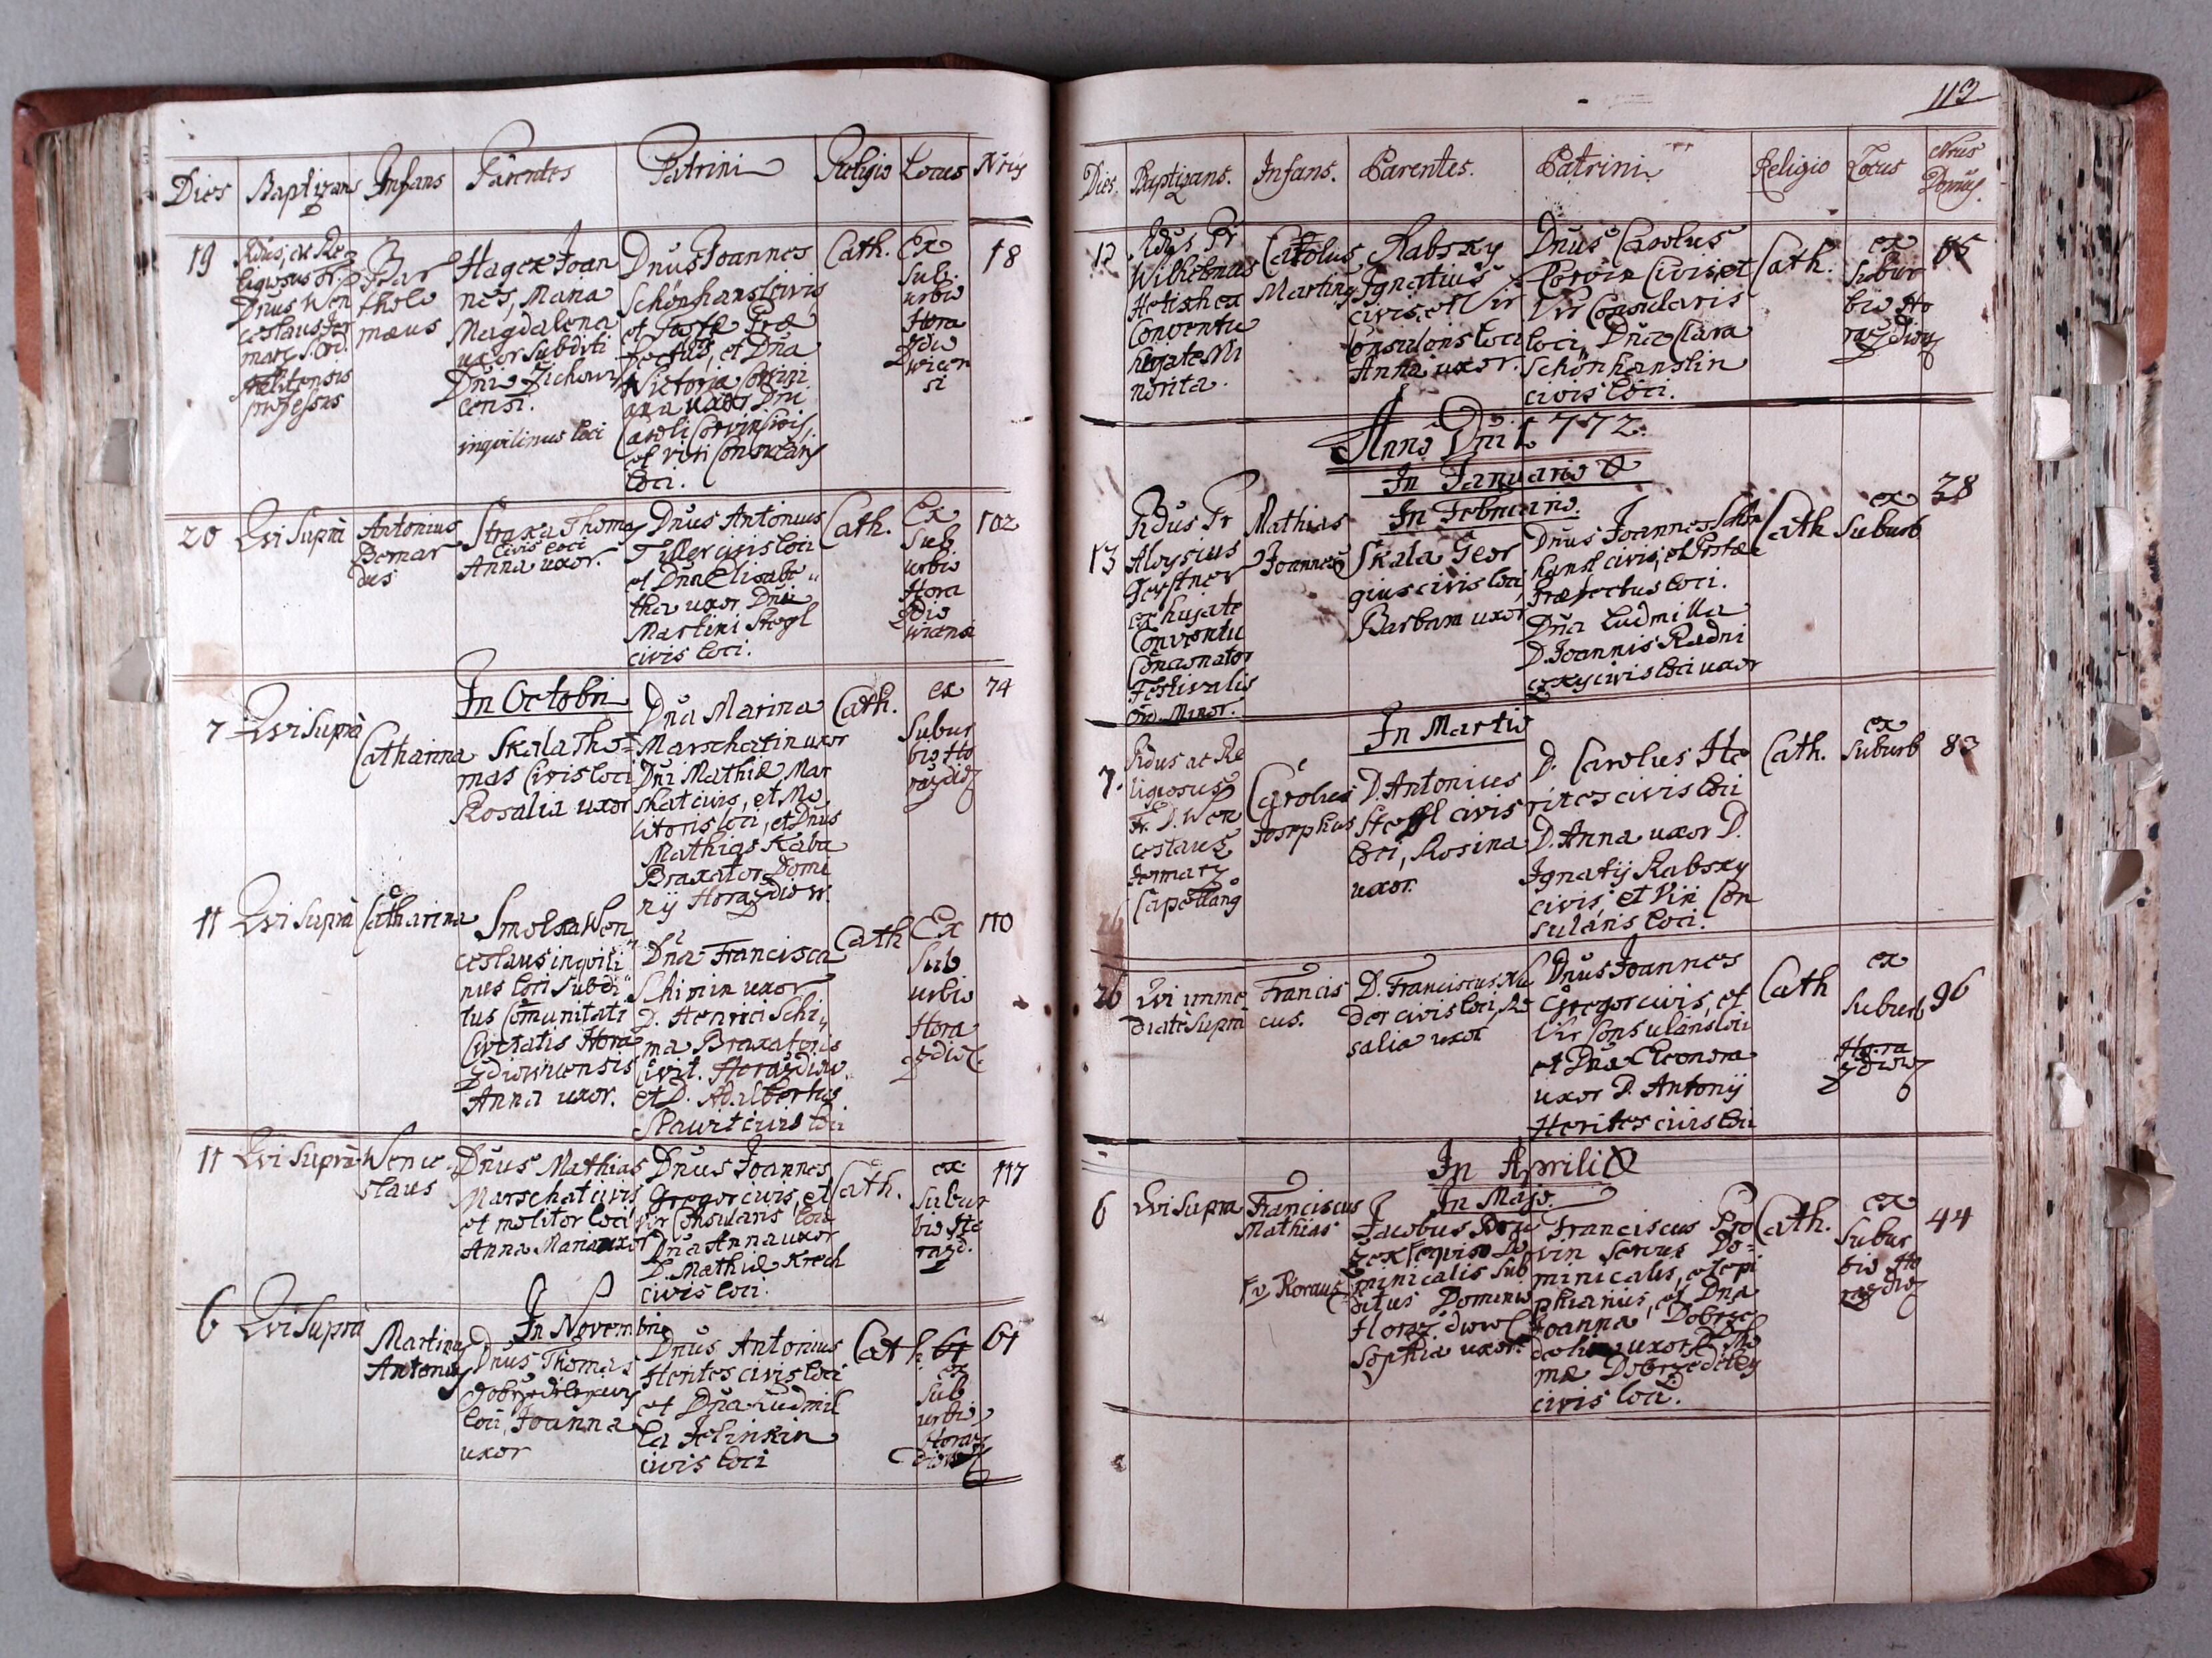 Dies Baptizans Infans Parentes Patrini Religio Locus Nrus
19
Rdus, ac Re
ligiosus Fr.
Dnus Wen
ceslaus
professus
Bar
tholo
mæus
Hagek Joan
nes, Maria
Magdalena
uxor subditi
Dni Zichowi
censi.
inquilinus loci
Dnus Joannes
Schönhansl civis
et Postæ Præ
fectus, et Dna
Victoria Corvini
ana uxor Dni
Caroli Corvin civis,
et viri Consularis
loci.
Cath.
Ex
Sub
urbio
Hora
zdio
wicen
si
18
20
Qvi Supra
Antonius
Bernar
dus
Straka Thomas
Civis loci
Anna uxor.
Dnus Antonius
Tiller civis loci
et Dna Elisabe
tha uxor Dni
Martini Stegl
civis loci.
Cath.
Ex
Sub
urbio
Hora
zdio
102
In Octobri
7
Qvi Supra
Catharina
Skala Tho=
mas Civis loci
Rosalia uxor
Dna Marina
Marschatin uxor
Dni Mathiæ Mar
shat civis, et Mo
litoris loci, et Dnus
Mathias Kaba
Braxator Domi
nij Horazdiow.
Cath.
ex
Subur
bio Ho
razdio
74
11
Qvi Supra
Catharina
Smolka Wen
ceslaus inqvili
nus loci Subdi
tus Comunitati
Civitatis Hora
zdiowicensis
Anna uxor.
Dna Francisca
Schimin uxor
D. Henrici Schi
ma Braxatoris
Civit. Horazdiow.
et D. Adalbertus
Slawit civis loci
Cath
Ex
Sub
urbio
Hora
zdio
110
11
Qvi Supra
Wence
slaus
Dnus Mathias
Marschat civis
et molitor loci
Anna Maria uxor
Dnus Joannes
Gregor civis, et
vir Consularis loci
Dna Anna uxor
D. Mathiæ Krech
civis loci.
Cath.
ex
Subur
bio Ho
razd.
117
In Novembri
6
Qvi Supra
Martinus
Antonius
Dnus Thomas
loci, Joanna
uxor
Dnus Antonius
Herites civis loci
et Dna Ludmil
la Jelinkin
civis loci
Cath.
61
ex
Sub
urbio
Horaz
diow
61
113
Dies. Baptizans. Infans. Parentes. Patrini. Religio Locus Nrus
Domus.
12
Rdus Pr
Wilhelmus
Conventu
hujate Mi
norita.
Carolus
Martinus
Rabsky
Ignatius
civis, et Vir
Consularis loci
Anna uxor.
Dnus Carolus
Corvin Civis, et
Vir Consularis
loci, Dna Clara
Schönhanslin
civis loci.
Cath.
ex
Subur
bio Ho
razdiow
Anno Dni 1772.
In Januario 0
In Februario.
13
Rdus Pr
Aloysius
Gerstner
ex hujate
Conventu
Concionator
Festivalis
Ord. Minor.
Mathias
Joannes
Skala Geor
gius civis loci
Barbara uxor
Dnus Joannes Schön
hansl civis, et Postæ
Præfectus loci.
Dna Ludmilla
D. Joannis Radni
czky civis loci uxor
Cath
ex
Suburb
28
In Martio
7.
Rdus ac Re
ligiosus
Fr. D. Wen
ceslaus
Capellanus
Carolus
Josephus
D. Antonius
Stegl civis
loci, Rosina
uxor.
D. Carolus He
rites civis loci
D. Anna uxor D.
Ignatij Rabsky
civis, et Viri Con
sularis loci.
Cath.
ex
Suburb
83
26
Qvi imme
diate Supra
Francis
cus.
D. Franciscus
der civis loci, Ro
salia uxor
Dnus Joannes
Gregor civis, et
Vir Consularis loci
et Dna Eleonora
uxor D. Antonij
Herites civis loci
Cath
ex
Suburb
Hora
zdiow
96
In Aprili 0
In Majo.
6
Qvi Supra
Franciscus
Mathias
Jacobus
minicalis Sub
ditus Dominio
Horaz diow
Sophia uxor.
Franciscus Pro
vin Servus Do=
minicalis,
et Dna
Joanna Dobrze
uxor D. Tho
mæ Dobrzedilky
civis loci.
Cath.
ex
Subur
bio Ho
razdio
44